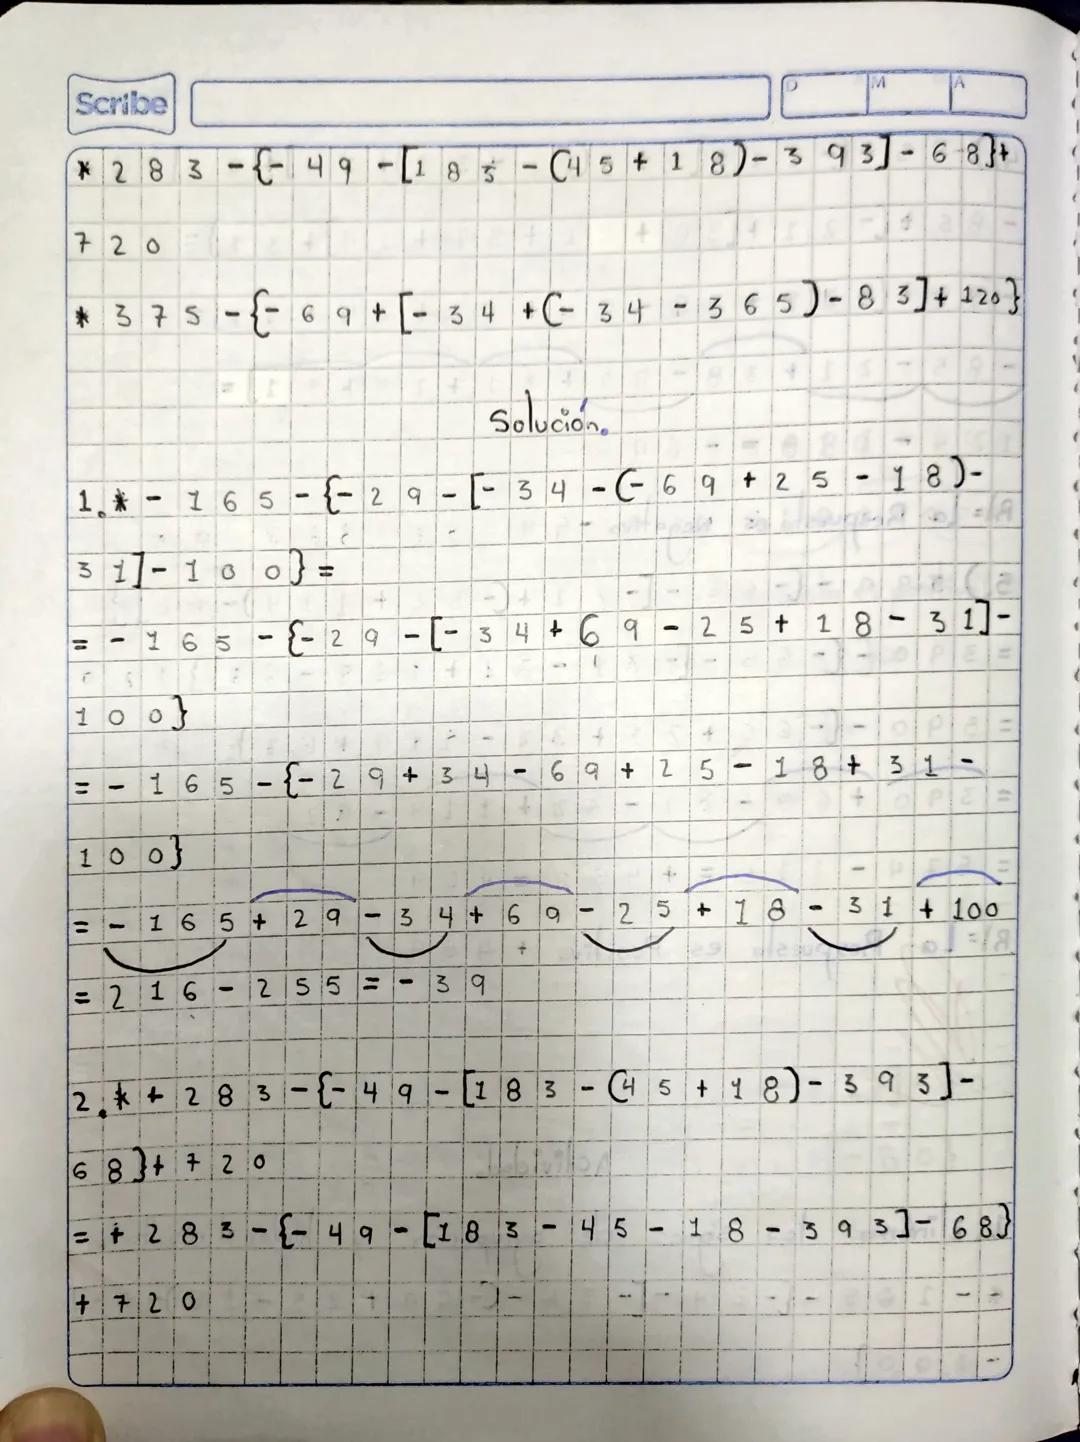 Scribe
D M A
* 283 -{- 49 -[183 - (45 + 18)- 393] - 68}+
720
* 375 -{- 69 +[- 34 +(- 34 - 365)- 83]+ 120}
Solución.
1.* - 165 -{- 29 -[- 34 -(- 69 + 25 - 18)-
31]- 100} =
= - 165 -{- 29 -[- 34 + 69 - 25 + 18 - 31]-
100}
= - 165 -{- 29 + 34 - 69 + 25 - 18 + 31 -
100}
= - 165 + 29 - 34 + 69 - 25 + 18 - 31 + 100
= 216 - 255 = - 39
2.* + 283 -{- 49 -[183 - (45 + 18)- 393]-
68}+ 720
= + 283 -{- 49 -[183 - 45 - 18 - 393]- 68}
+ 720